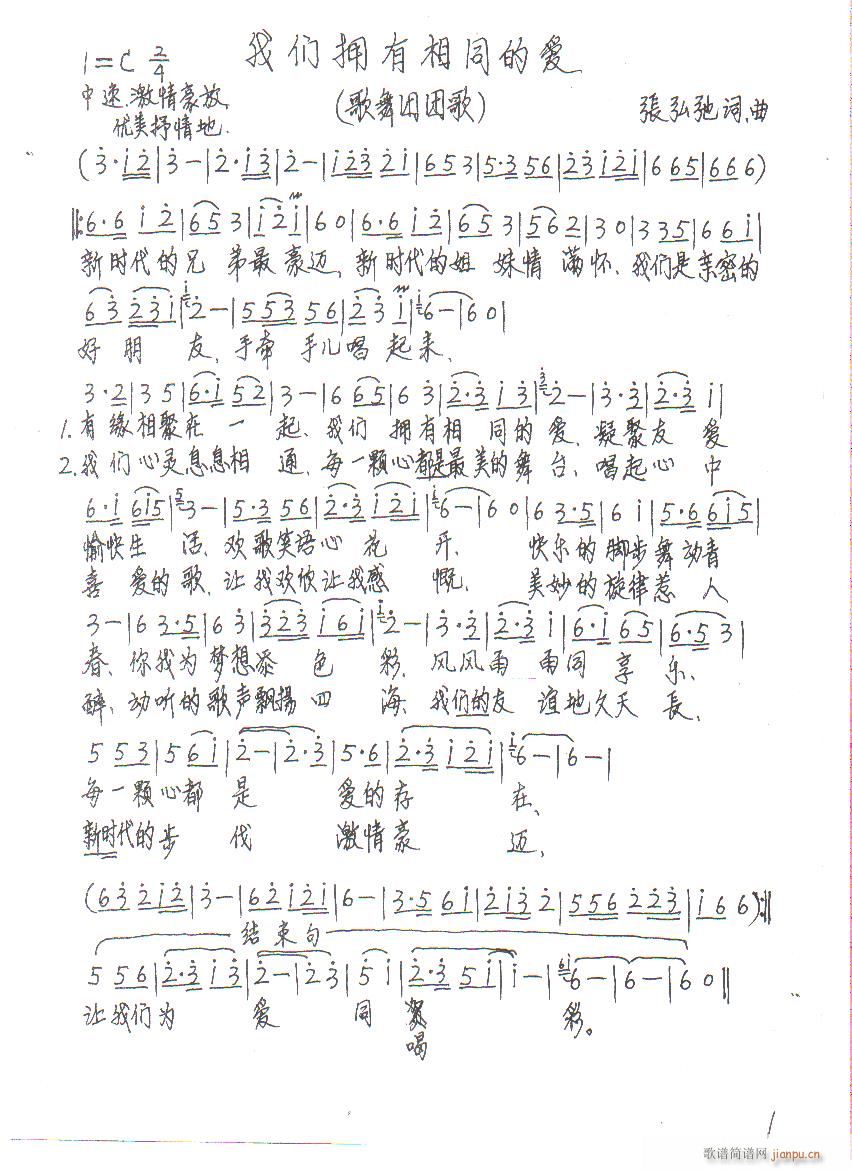 我们拥有相同的爱
1=C 2/4
(歌舞团团歌)
中速.激情豪放,
优美抒情地.
張弘弛词.曲
(3·i2|3-|2·i3|2-|i23 2i|653|5·3 56|23i2i|6 65|666)
‖:6·6 i2|65 3|i2i|60|6·6 i2|65 3|562|30|335|66i|
新时代的兄 弟最 豪迈、新时代的姐 妹情 满怀、我们是亲密的
63 23i|2-|553 56|23i|6-|60|
好朋 友、手牵 手儿唱 起来、
3·2|35|6·i 52|3-|6 65|63|2·3 i3|2-|3·3|2·3 i|
1.有缘相聚在 一 起、我们 拥有相 同的爱、凝聚友 爱
2.我们心灵息息相 通、每一颗心都是最美的舞 台、唱起心 中
6·i 6i5|3-|5·3 56|2·3 i2i|6-|60|63·5|6i|5·6 6i5|
愉快生 活、欢歌笑语心 花 开、 快乐的脚步舞动青
喜 爱的歌、让我欢欣让我感 慨、 美妙的旋律惹 人
3-|63·5|63|323 i6i|2-|3·3|2·3 i|6·i 65|6·5 3|
春、你我为梦想添 色 彩、风风雨 雨同 享 乐、
醉、动听的歌声飘揚 四 海、我们的友 谊地久天 長、
5 53|5 6i|2-|2·3|5·6|2·3 i2i|6-|6-|
每一颗心都 是 爱的存 在、
新时代的步 伐 激情豪 迈、
(63 2i2|3-|62 i2i|6-|3·5 6i|2i3 2|556 223|i66):‖
结束句
5 56|2·3 i3|2-|23|5 i|2·3 5i|i-|6-|6-|60‖
让我们为 爱 同 彩。
喝
1
歌谱简谱网 jianpu.cn